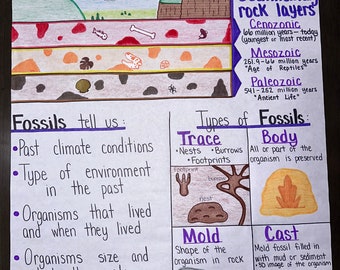 rock layers
Cenozoic
66 million years - today
(youngest or most recent)
Mesozoic
251.9-66 million years
"Age of Reptiles"
Paleozoic
541-252 million years
"Ancient Life"
Fossils tell us:
• Past climate conditions
• Type of environment
in the past
• Organisms that lived
and when they lived
• Organisms size and
Types of Fossils:
Trace
• Nests • Burrows
• Footprints
Body
All or part of the
organism is preserved
Footprint
burrow
nest
Mold
Shape of the
organism in rock
Cast
Mold fossil filled in
with mud or sediment
• 3D image of the organism